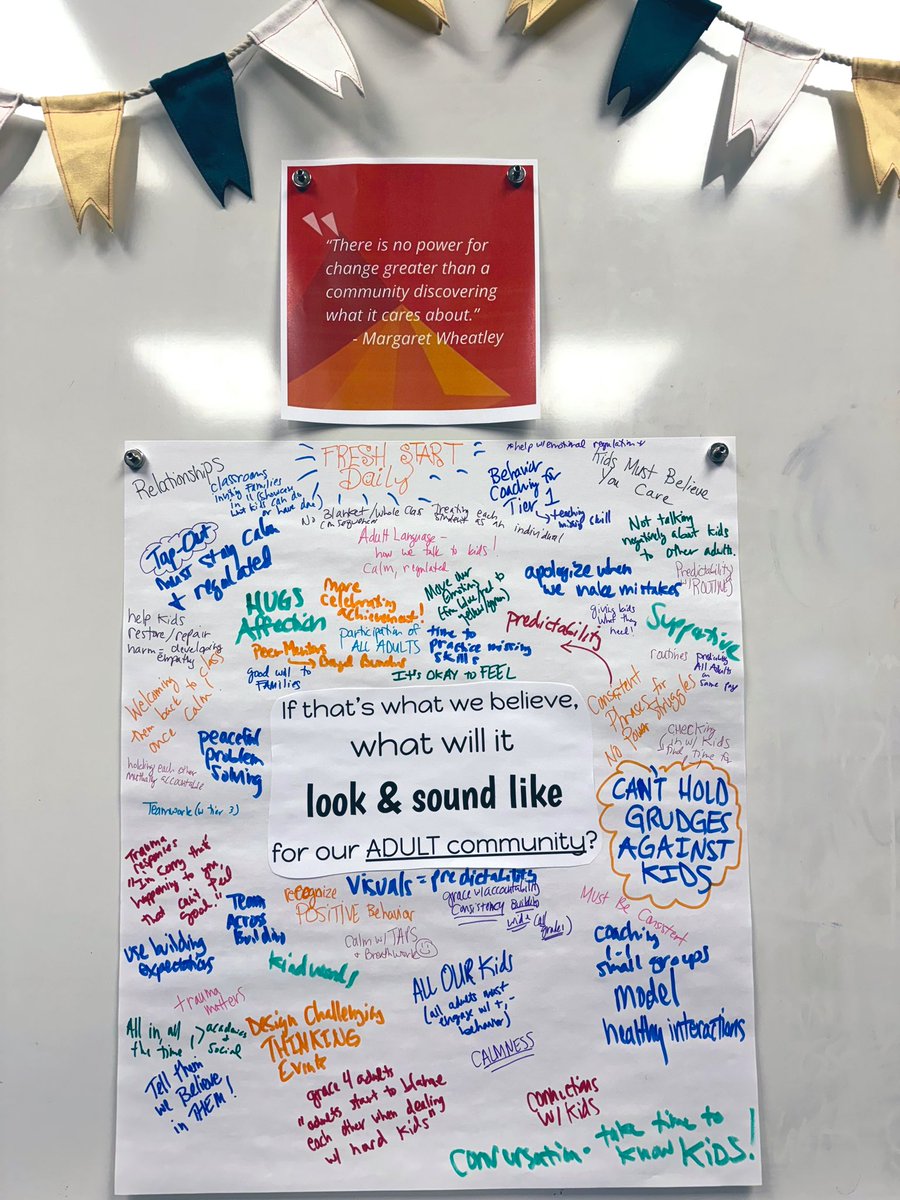 “There is no power for
change greater than a
community discovering
what it cares about.”
- Margaret Wheatley
Relationships
classrooms
inviting families
in
what kids can do
or have done)
FRESH START
Daily
*help w/emotional regulation*
Behavior
Coaching for
Tier 1
teaching
missing skill
Kids Must Believe
You Care
No Blanket/Whole Class
consequences
Treating each
student as an individual
Tap-Out
must stay calm
+ regulated
Adult Language -
how we talk to kids!
Calm, regulated
Not talking
negatively about kids
to other adults.
apologize when
we make mistakes
Predictability
(ROUTINES)
HUGS
Affection
More
celebrating
achievement!
Move our
giving kids
what they
need!
Supportive
help kids
restore/repair
harm = developing
empathy
Peer Mentors
participation of
ALL ADULTS
time to
practice missing
skills
predictability
good will to
Families
It's OKAY to FEEL
routines
All Adults
on
same pg
Welcoming
them back to class
once calm!
Consistent
Phrases for
No Power Struggles
peaceful
problem
Solving
checking
in w/ Kids
find time for
holding each other
mutually accountable
Teamwork (w tier 3)
If that’s what we believe,
what will it
look & sound like
for our ADULT community?
CAN'T HOLD
GRUDGES
AGAINST
KIDS
Trauma
responses
"I'm sorry that's
happening to you,
that can't feel
good!"
Team
Across
Building
recognize
POSITIVE Behavior
Visuals = predictability
grace w/accountability
Consistency Building
wide (all
grades)
Must Be Consistent
use building
expectations
Calm w/ TAPS
+ Breathwork
kind words
coaching
small groups
model
healthy interactions
trauma
matters
ALL OUR Kids
(all adults must
engage w/ +, -
behavior)
All in, all
the time
academics
+ Social
Design Challenging
THINKING
Events
CALMNESS
Tell Them
we Believe
in THEM!
grace 4 adults
"adults start to blame
each other when dealing
w/ hard kids"
connections
w/ kids
Conversation - take time to
know KIDS!